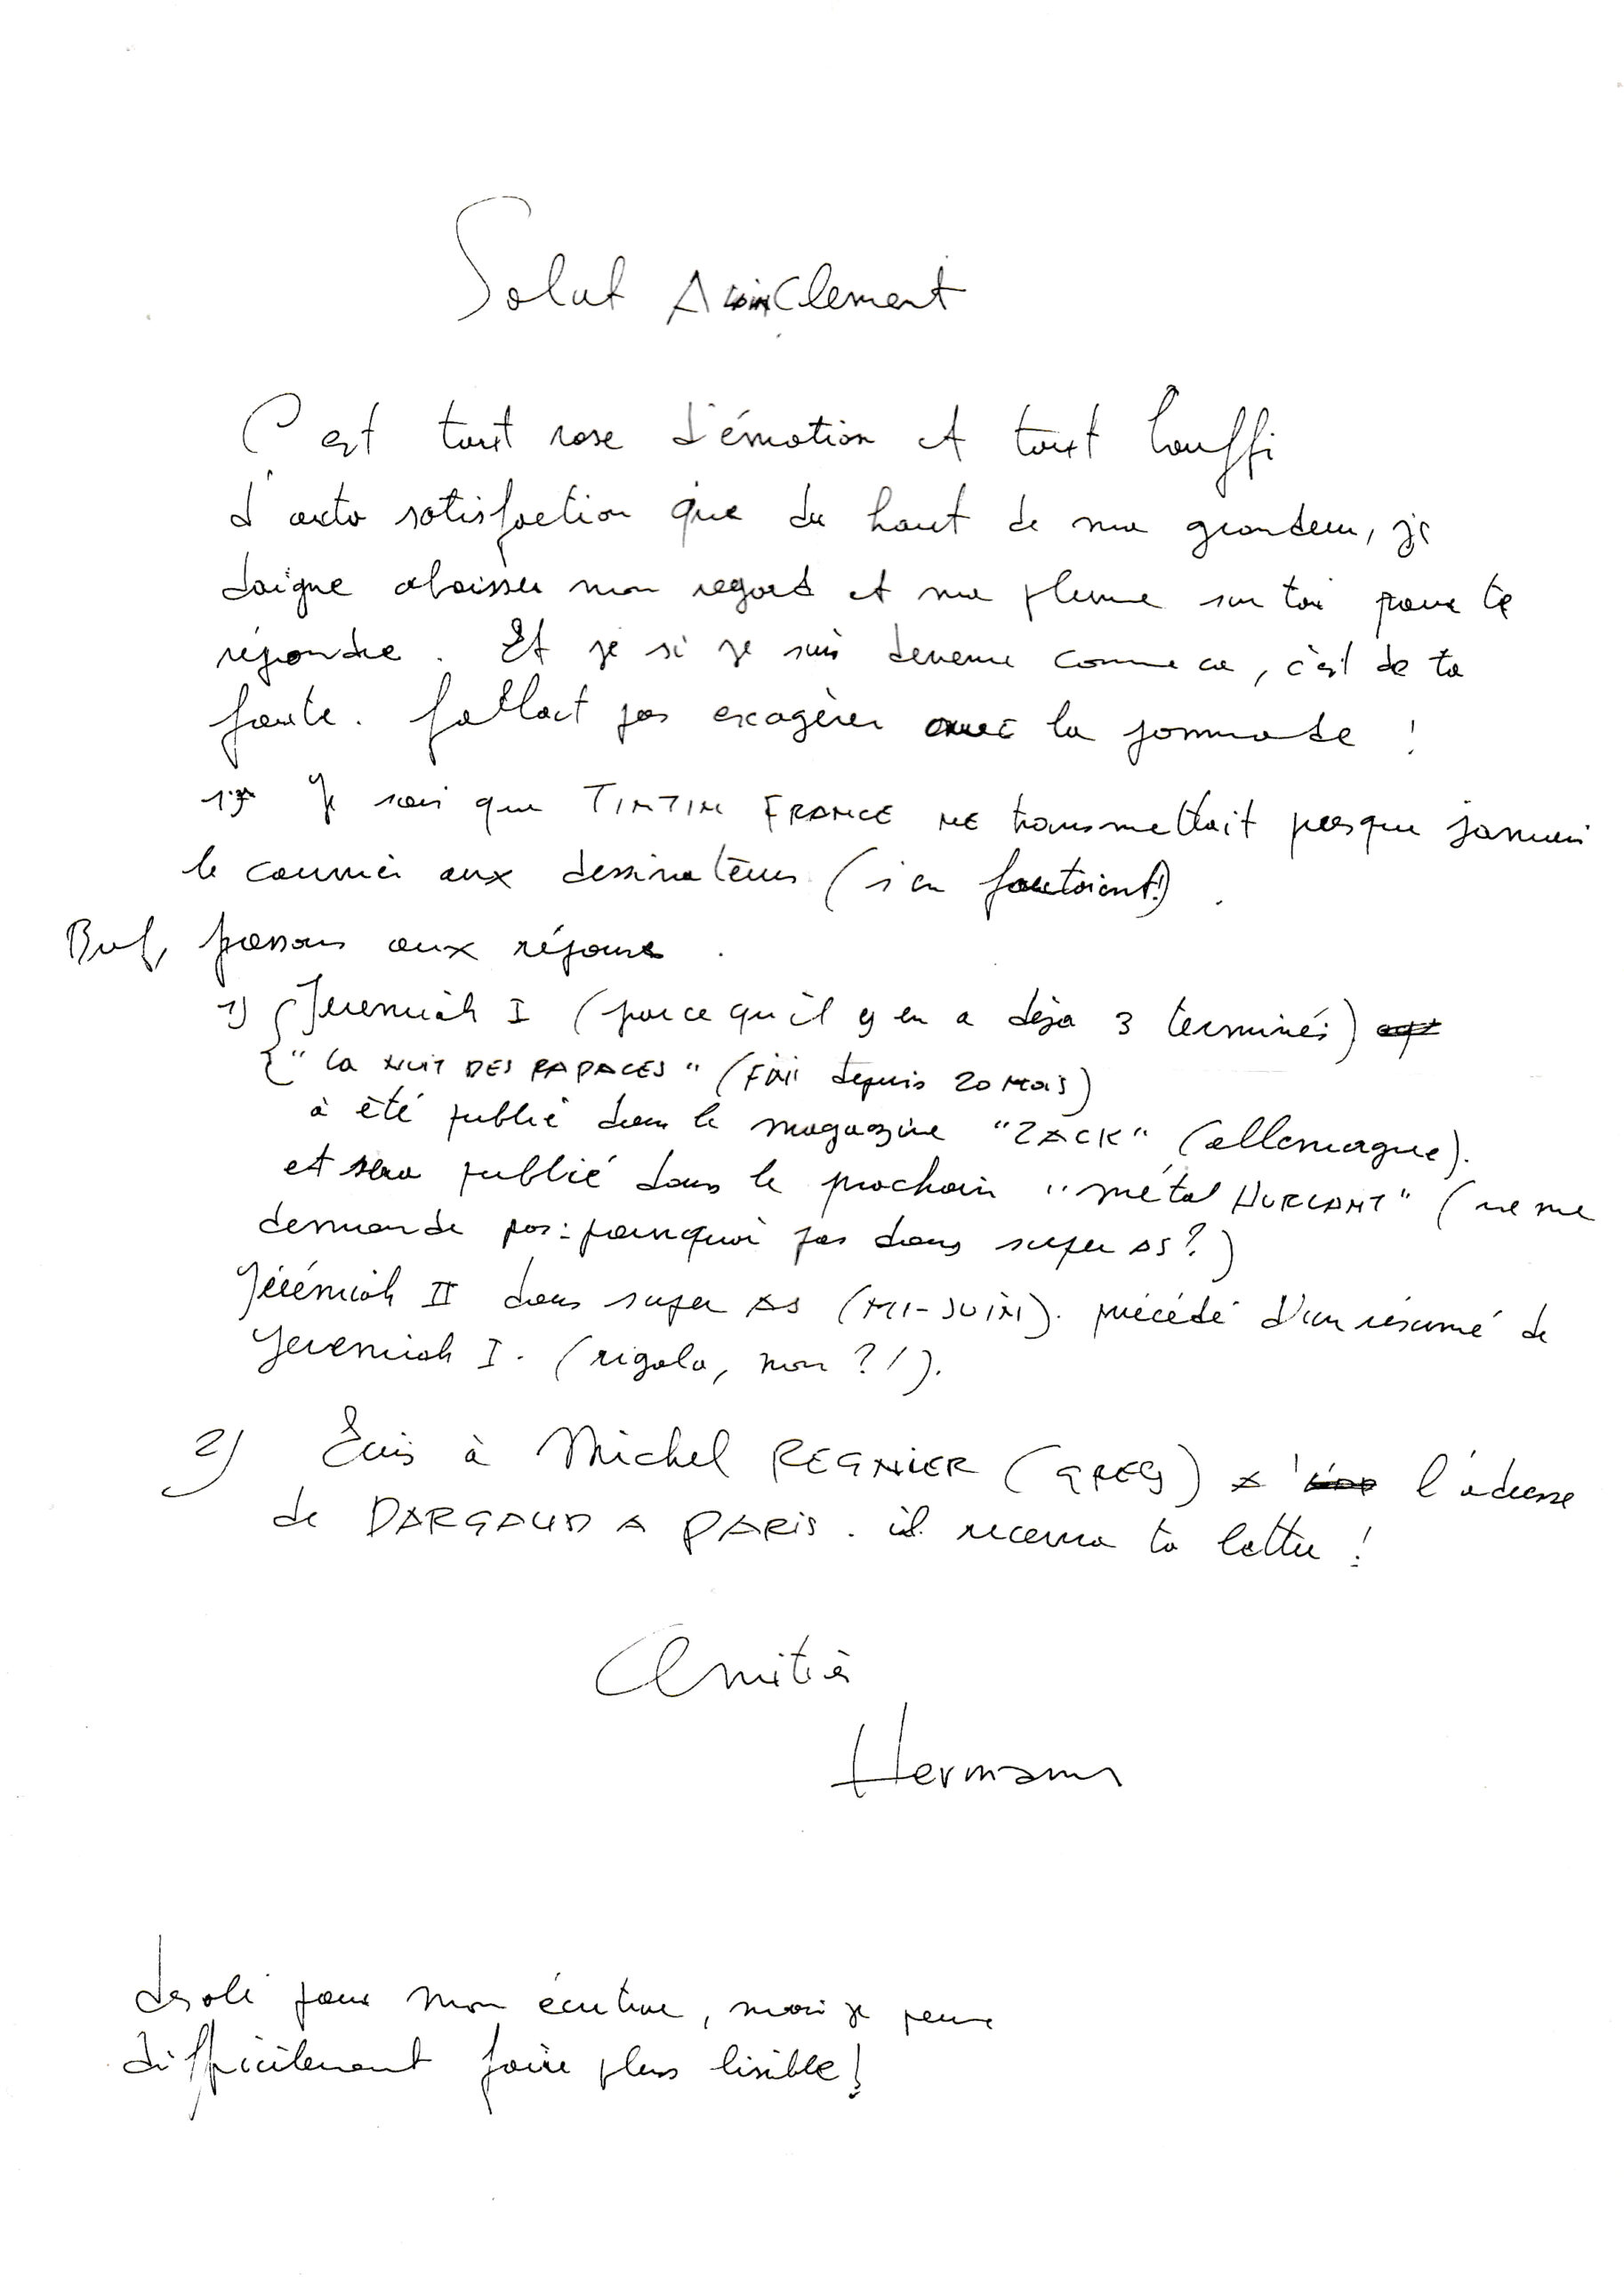 Salut Clement
C'est tout rose d'émotion et tout bouffi
d'auto satisfaction que du haut de ma grandeur, je
daigne abaisser mon regard et ma plume sur toi pour te
répondre. Et je si je suis devenu comme ca, c'est de ta
faute. fallait pas exagérer avec la pommade !
Je sais que TINTIN FRANCE NE transmettait presque jamais
le courrier aux dessinateurs (s'en foutaient!).
Bref, passons aux réponses.
1) Jeremiah I (parce qu'il y en a déja 3 terminés)
"La NUIT DES RAPACES" (FINI depuis 20 MOIS)
à été publié dans le magazine "ZACK" (allemagne).
et sera publié dans le prochain "métal HURLANT" (ne me
demande pas : pourquoi pas dans super AS ?)
Jérémiah II dans super AS (MI-JUIN). précédé d'un résumé de
Jeremiah I. (rigolo, non ?!).
2) Ecris à Michel REGNIER (GREG) l'adresse
de DARGAUD A PARIS. il recevra ta lettre !
Amitiés
Hermann
désolé pour mon écriture, mais je peux
difficilement faire plus lisible !